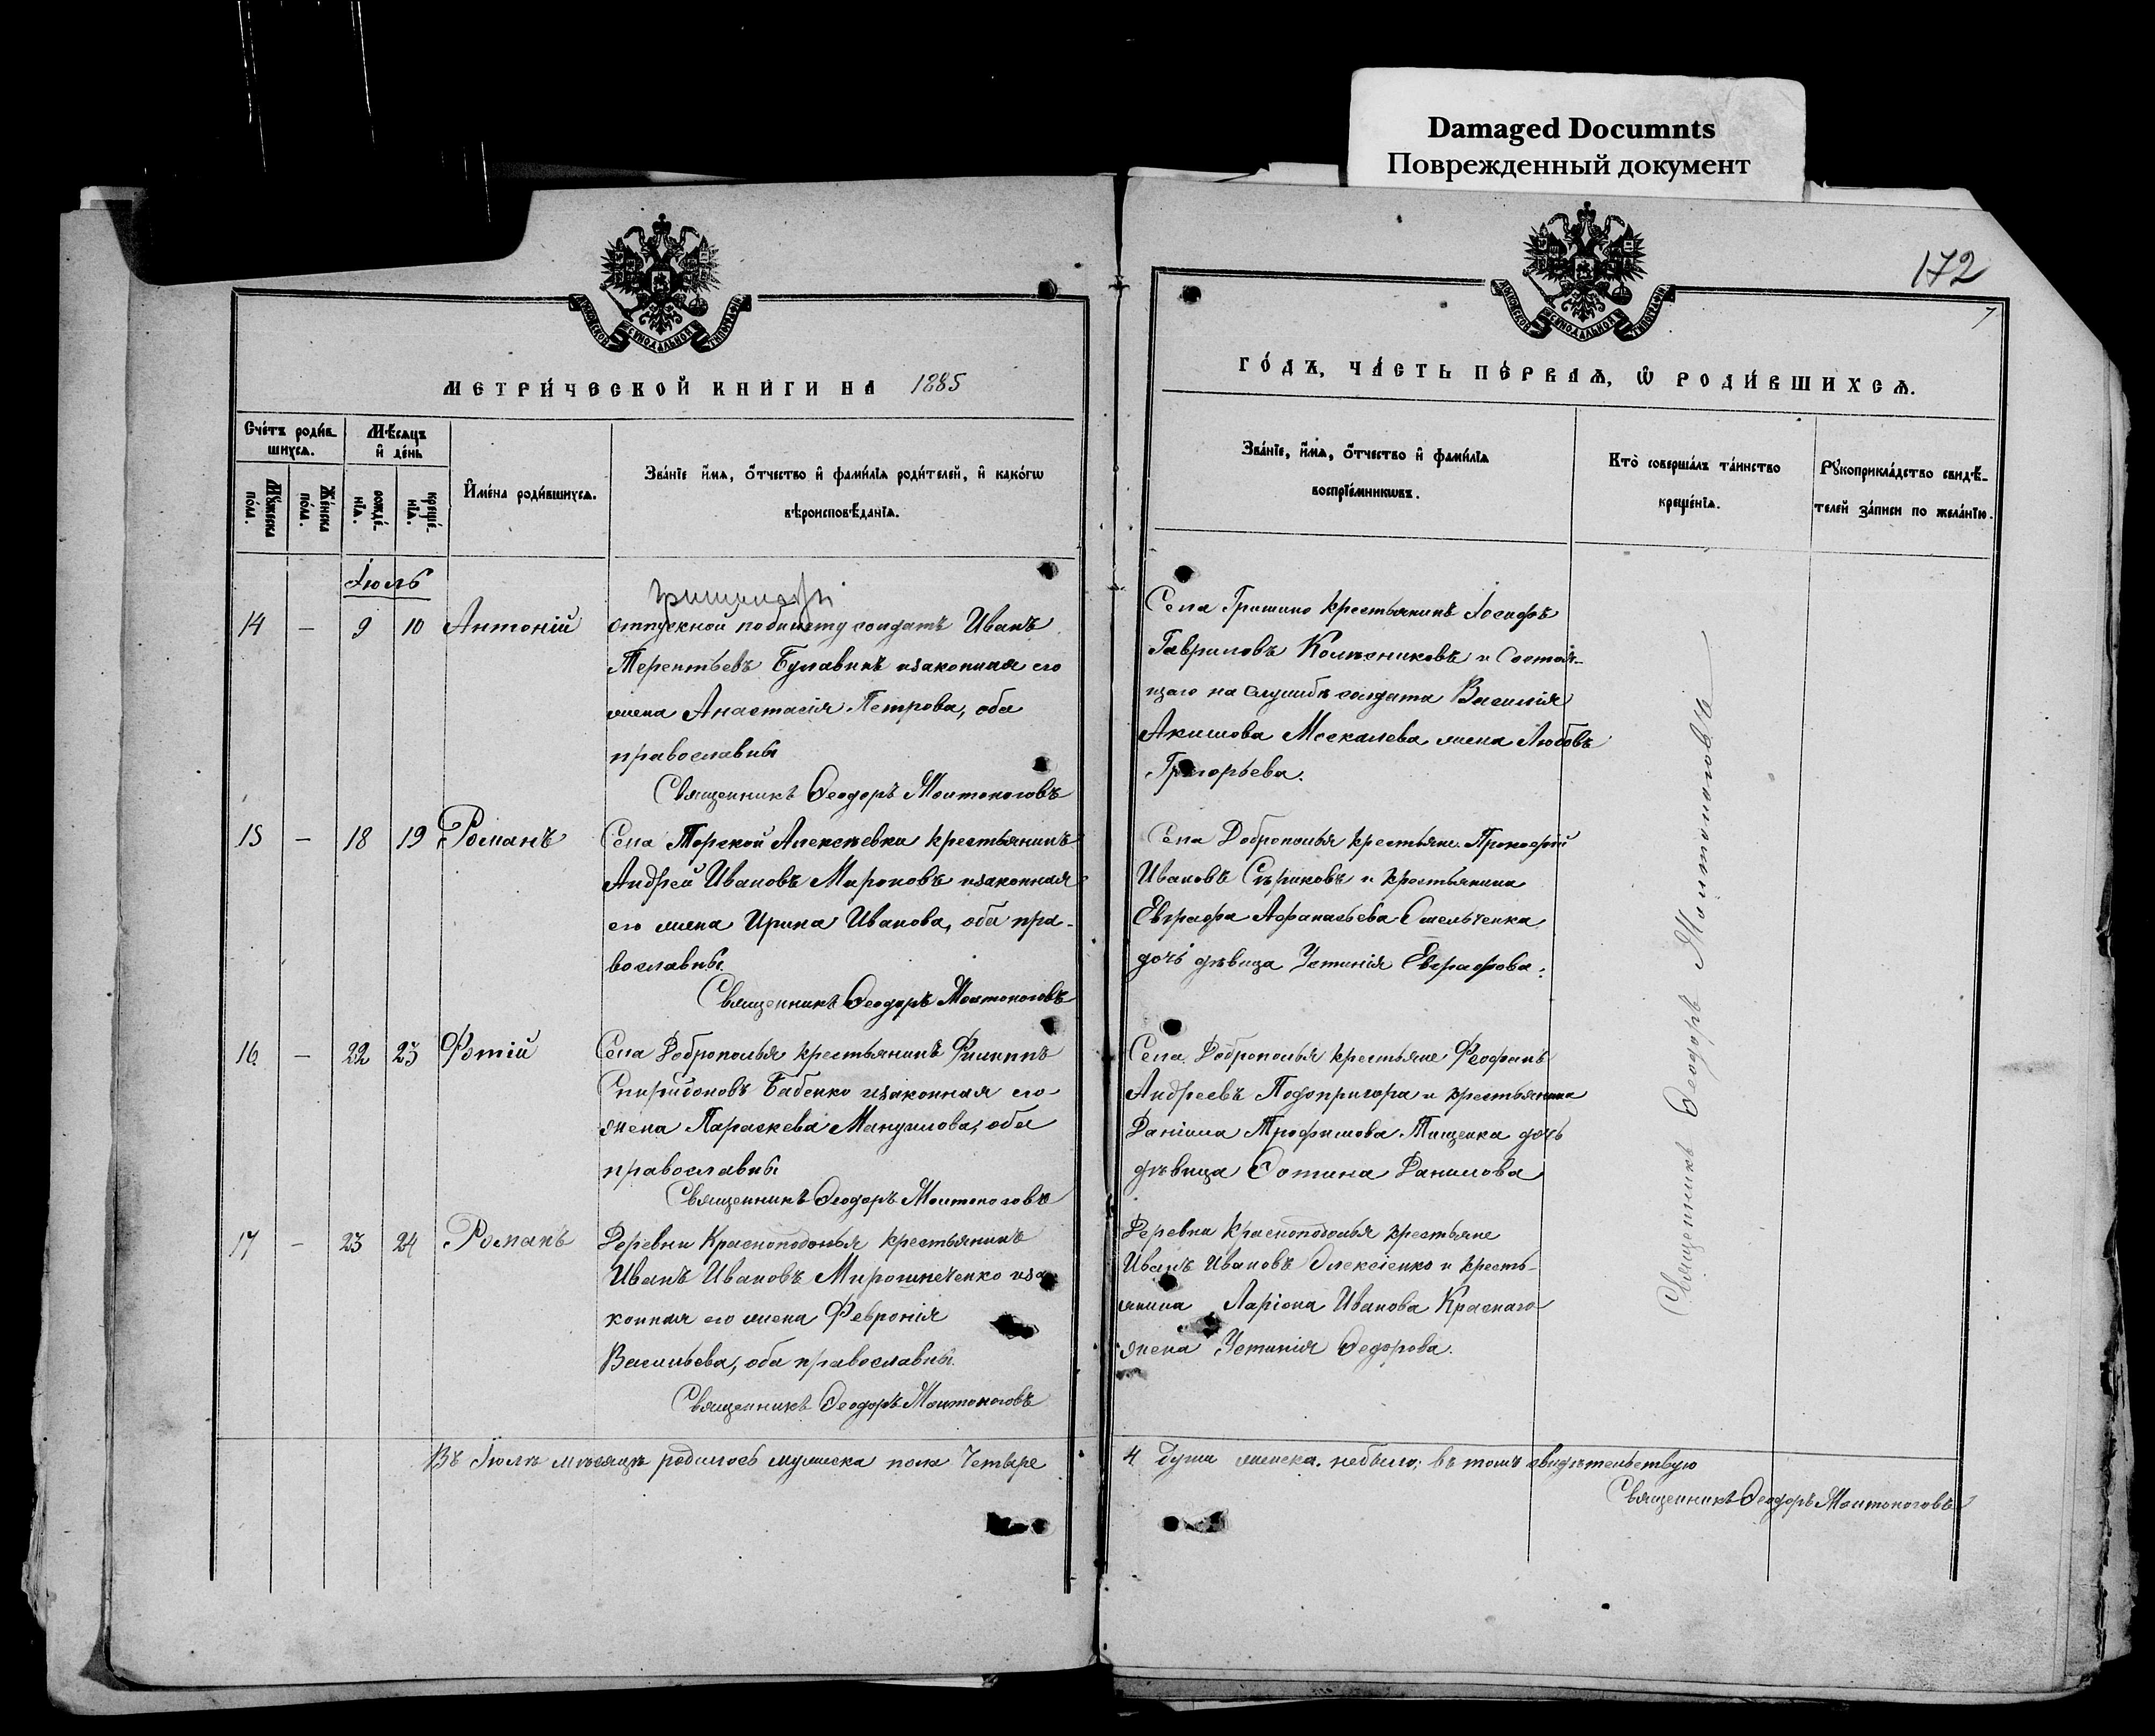 Damaged Documnts
Поврежденный документ
172
МОСКОВСКОЙ СѴНОДАЛЬНОЙ ТИПОГРАФІИ
МОСКОВСКОЙ СѴНОДАЛЬНОЙ ТИПОГРАФІИ
МЕТРИ́ЧЕСКОЙ КНИ́ГИ НА 1885
ГО́ДЪ, ЧА́СТЬ ПЕ́РВАѦ, Ѽ РОДИ́ВШИХСѦ.
Сче́тъ роди́в-
шихсѧ.
Мѣ́сѧцъ
и҆ де́нь
Мꙋ́жеска
по́ла.
Же́нска
по́ла.
рожде́-
нїѧ.
креще́-
нїѧ.
И҆мена̀ роди́вшихсѧ.
Зва́нїе и҆́мѧ, ѻ҆́тчество и҆ фами́лїѧ роди́телей, и҆ како́гѡ
вѣроисповѣ́данїѧ.
Зва́нїе, и҆́мѧ, ѻ҆́тчество и҆ фами́лїѧ
воспрїе́мникѡвъ.
Кто̀ соверша́лъ та́инство
креще́нїѧ.
Рꙋкоприкла́дство свидѣ́-
телей за́писи по жела́нїю.
Іюль
14 — 9 10 Антоній
отпускной по билету солдатъ Иванъ
Терентьевъ Булавинъ и законная его
жена Анастасія Петрова, оба
православны
Священникъ Ѳеодоръ Молтоноговъ
Села Гришино крестьянинъ Іосифъ
Гавриловъ Колесниковъ и Состоя-
щаго на службѣ солдата Василія
Акимова Москалева жена Любовь
Григорьева.
15 — 18 19 Романъ
Села Торской Алексѣевки крестьянинъ
Андрей Ивановъ Мироновъ и законная
его жена Ирина Иванова, оба пра-
вославны.
Священникъ Ѳеодоръ Молтоноговъ
Села Доброполья крестьяне Прокофій
Ивановъ Сѣриковъ и крестьянина
Евграфа Афанасьева Омельченка
дочь дѣвица Устинія Евграфова.
16 — 22 23 Фотій
Села Доброполья крестьянинъ Филиппъ
Спиридоновъ Бабенко и законная его
жена Параскева Мануилова, оба
православны
Священникъ Ѳеодоръ Молтоноговъ
Села Доброполья крестьяне Феофанъ
Андреевъ Подопригора и крестьянина
Даніила Трофимова Тищенка дочь
дѣвица Фотина Данилова
17 — 23 24 Романъ
Деревни Красноподолья крестьянинъ
Иванъ Ивановъ Мирошниченко и за-
конная его жена Февронія
Васильева, оба православны.
Священникъ Ѳеодоръ Молтоноговъ
Деревни Красноподолья крестьяне
Иванъ Ивановъ Олексіенко и кресть-
янина Ларіона Иванова Краснаго
жена Устинія Ѳедорова.
Священникъ Ѳеодоръ Молтоноговъ
Въ Іюлѣ мѣсяцѣ родилось мужеска пола Четыре
4 души женска. небыло; въ томъ свидѣтельствую
Священникъ Ѳеодоръ Молтоноговъ